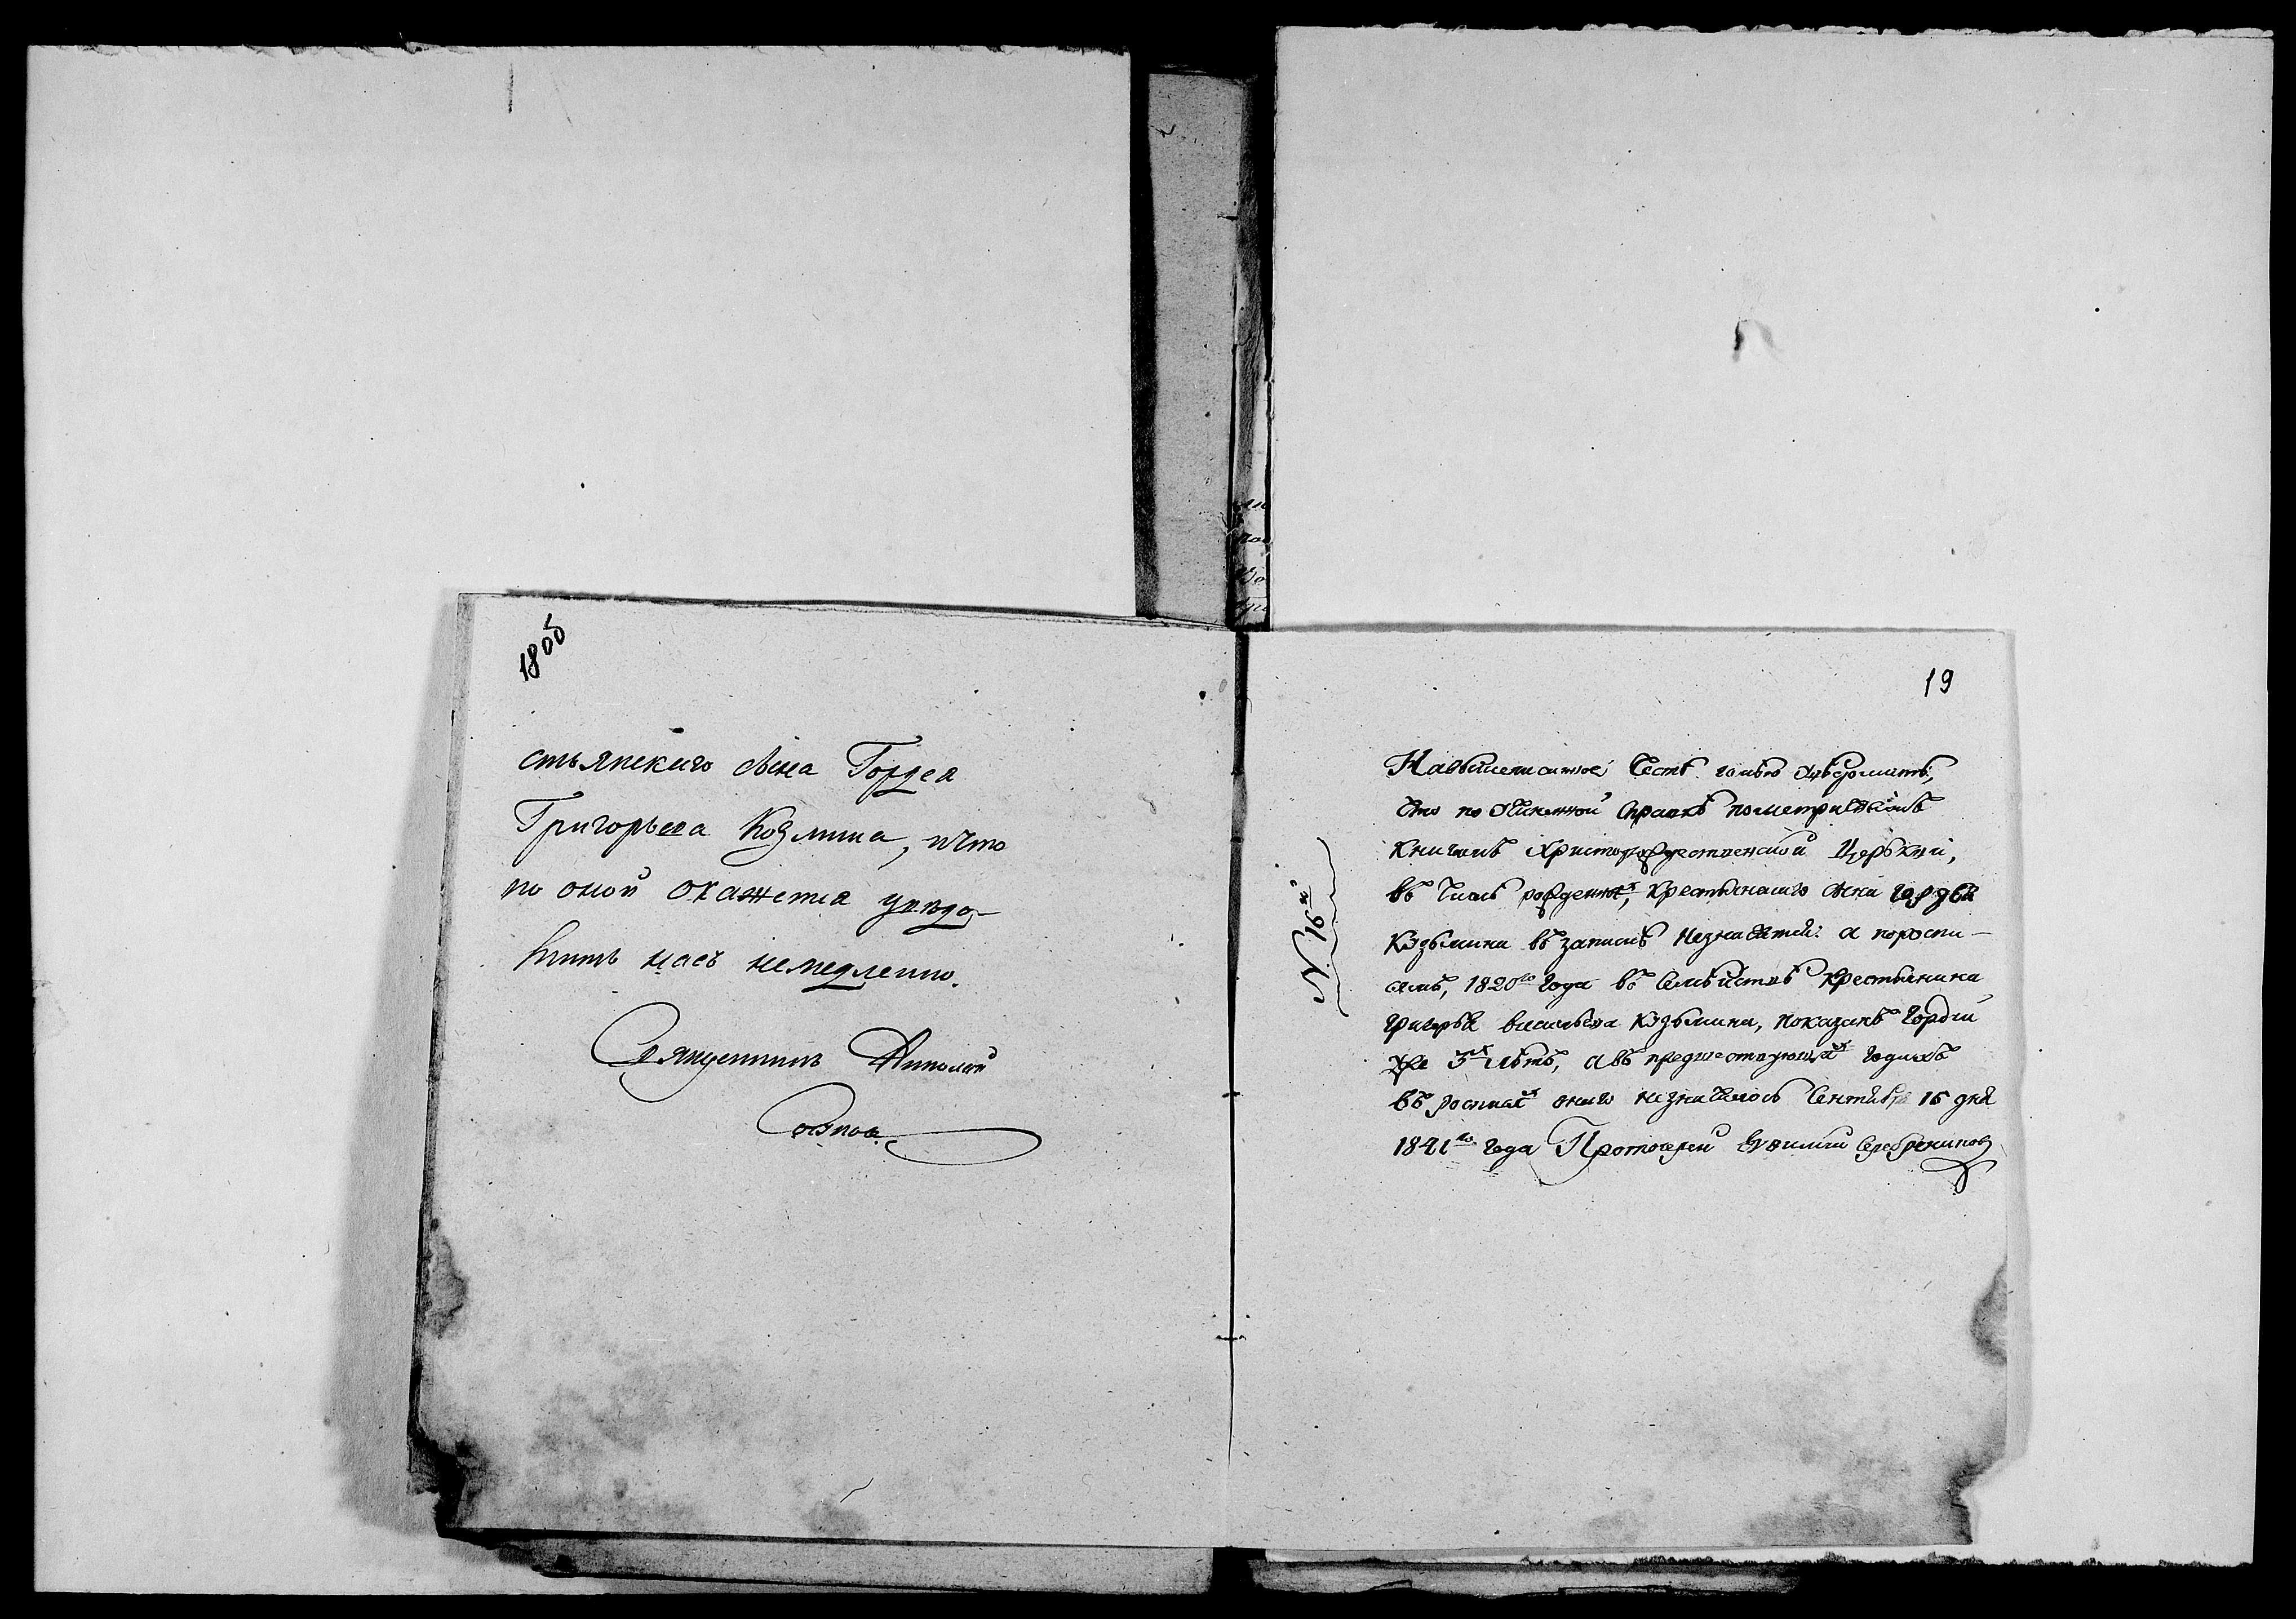 18об
стьянскаго сына Гордея
Григорьева Козмина, и что
по оной окажется уведо-
мить насъ немедленно.
Священникъ Николай
19
№ 16й
На вышеписанное Честь имѣю увѣдомить,
Что по Учиненной Справкѣ по метрическимъ
книгамъ Христорождественской Церькви,
въ Числѣ рожденныхъ, крестьянскаго сына Гордѣя
Кузьмина въ записѣ незначится: а по роспи-
сямъ, 1820го года въ Семѣйствѣ крестьянина
Григорья Васильева Кузьмина, показанъ Гордѣй
3хъ лѣтъ, а въ предшествующихъ годахъ
въ росписяхъ онаго незначилось Сентября 16 дня
1841го года Протоіерей Серебрениковъ